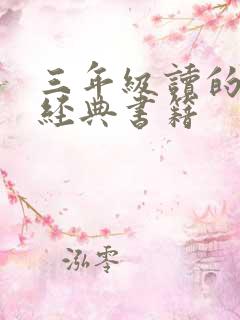 三年級讀的
經典書籍
泓零